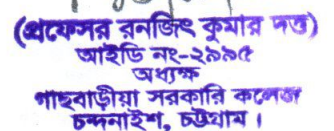 (প্রফেসর রনজিৎ কুমার দত্ত)
আইডি নং-২৯৯৫
অধ্যক্ষ
গাছবাড়ীয়া সরকারি কলেজ
চন্দনাইশ, চট্টগ্রাম।